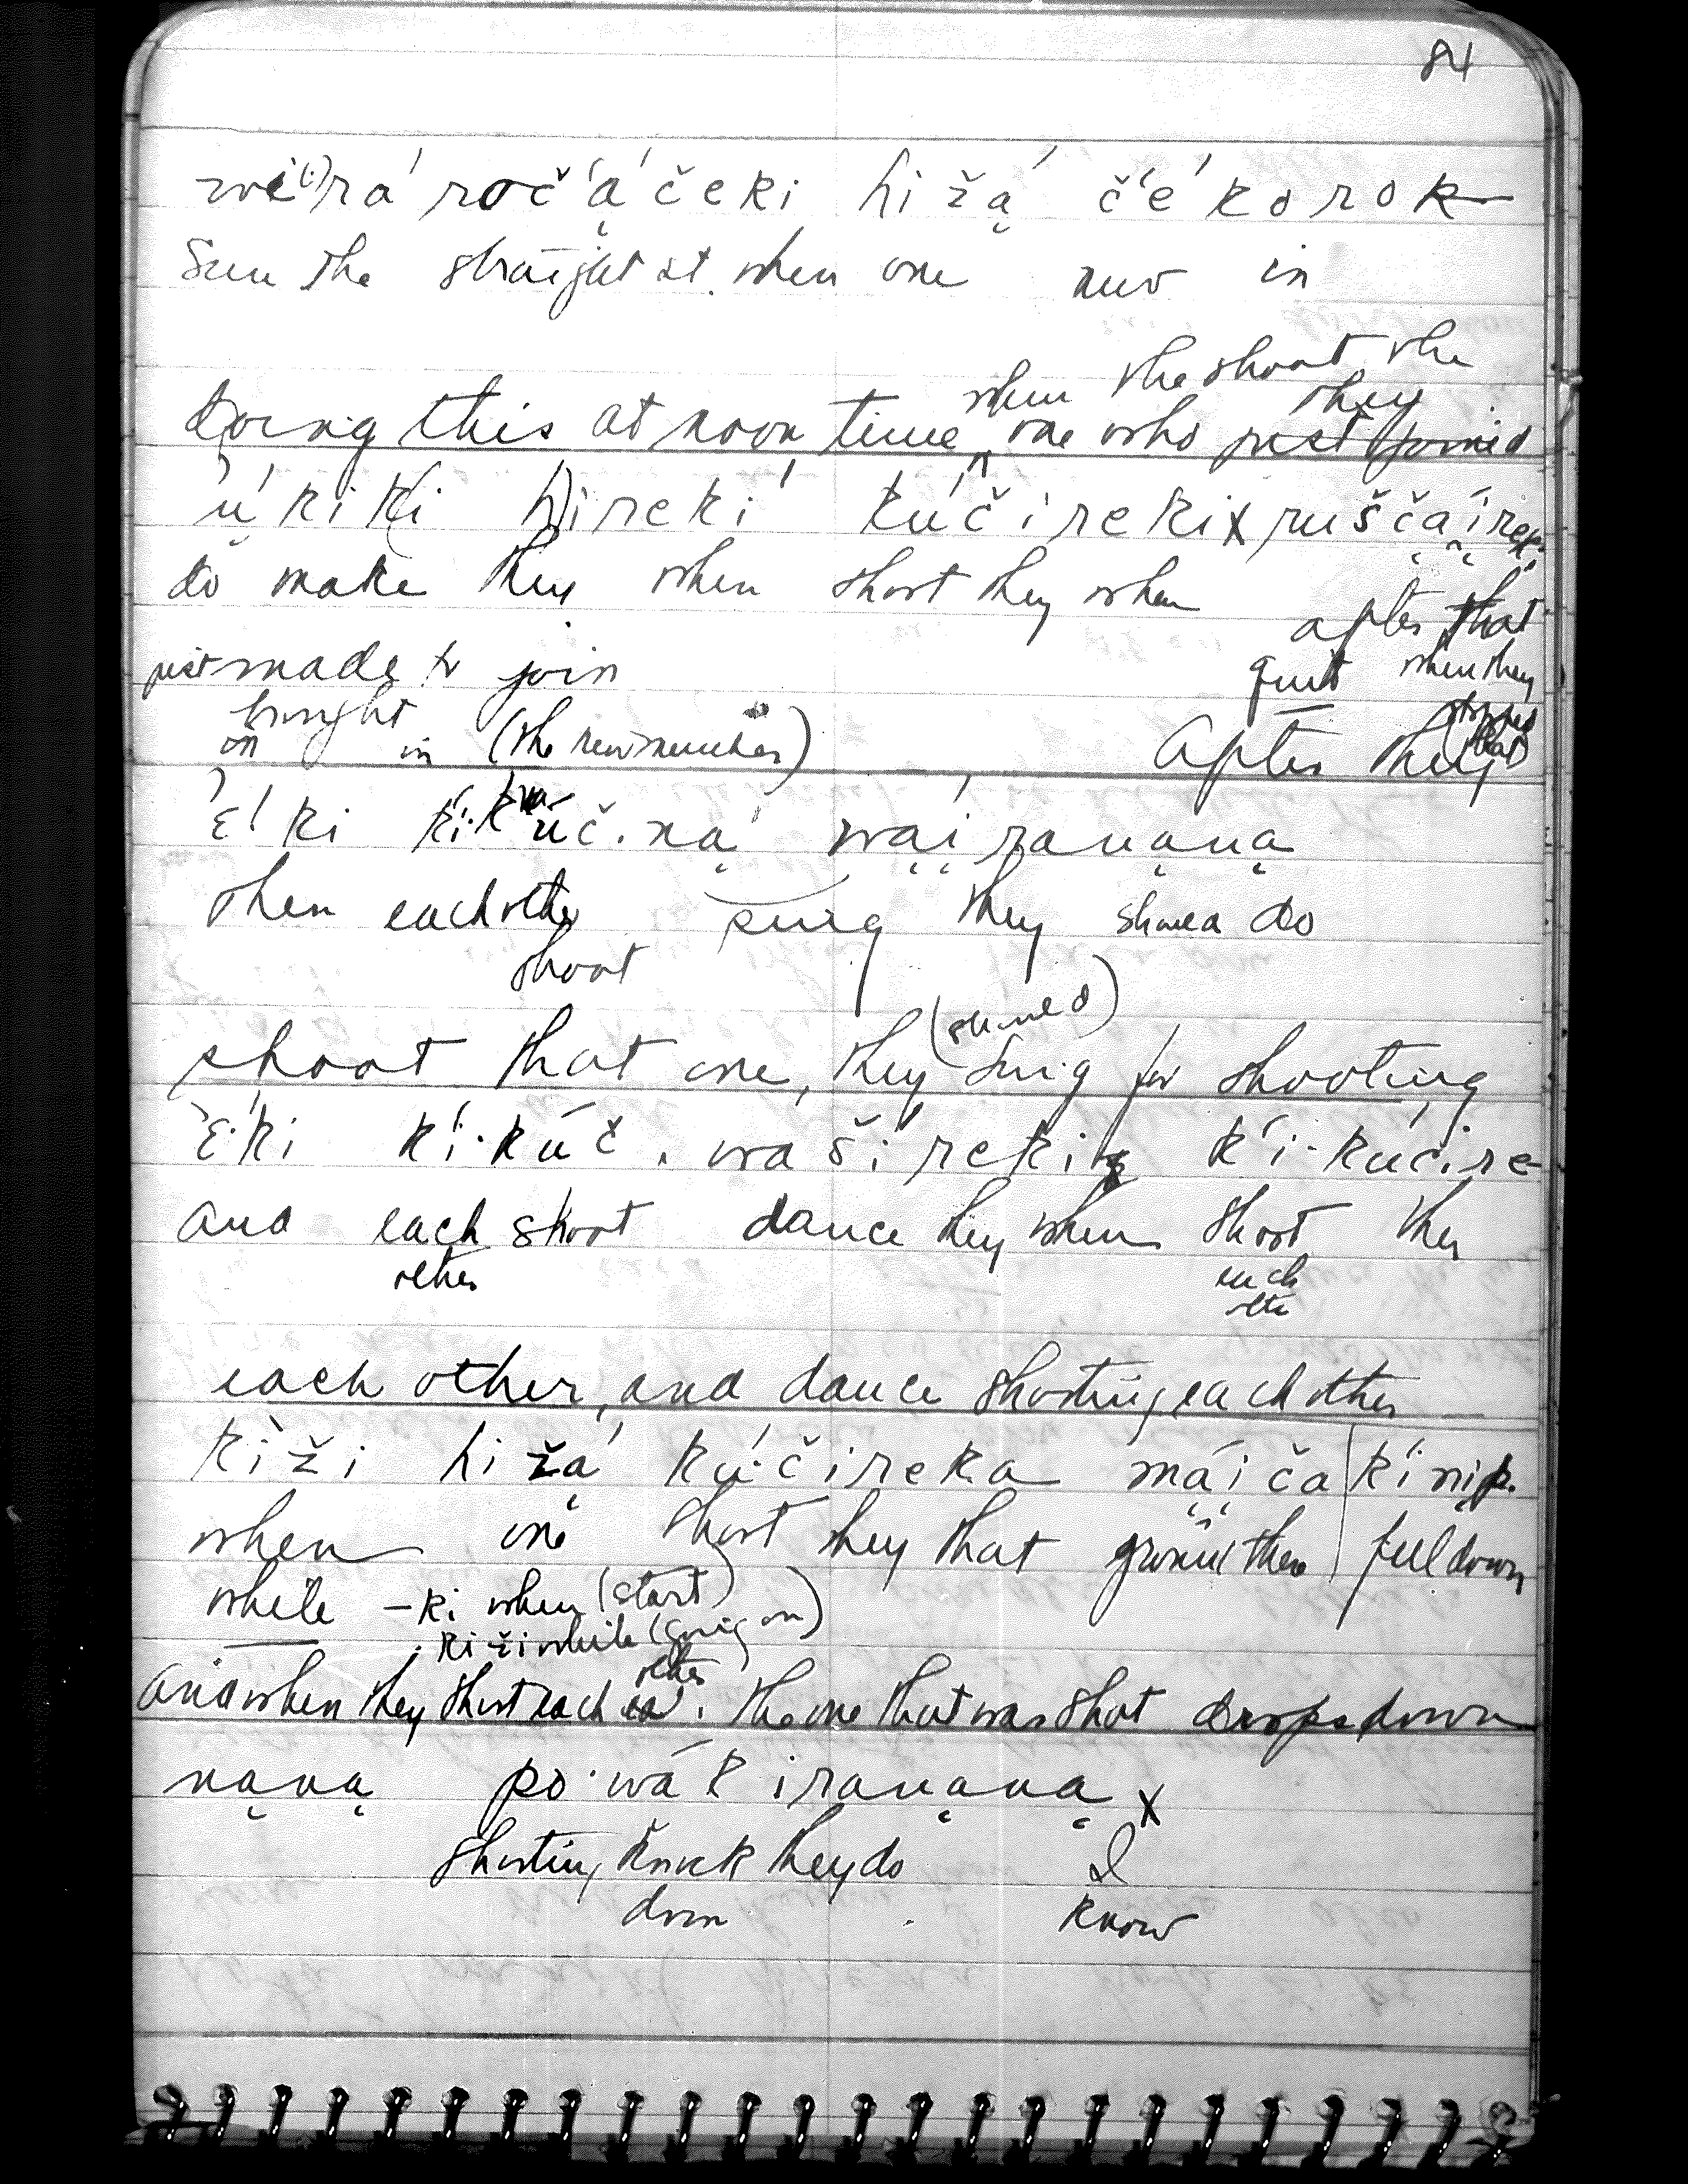 84
wi(·)rá roč'ą́čeki hižą́ č'ékorok
Sun the straight st. when one new in
when the shoot the
they
doing this at noon time ^ one who just joined
'ų́kiki hirekí kúčirekix ruščąį́reki
do make they when shoot they when after that
just made to join quit when they
brought in (the new member) stopped
After they (that)
'é·ki kí·kúč.ną wąįranąną
then each other sing they should do
shoot
(started)
shoot that one, they sing for shooting
'é·ki kí·kúč. wašírekix kí·kúčire
and each shoot dance they when shoot they
other each
other
each other, and dance shooting each other
kiži hižą́ kú·čireka mą́įča kínįp.
when one shoot they that ground there fell down
while –ki when (start)
·kiži while (going on)
other
and when they shoot each. the one that was shot drops down
nąną po·wák'iranąną x
shooting knock they do I
down know